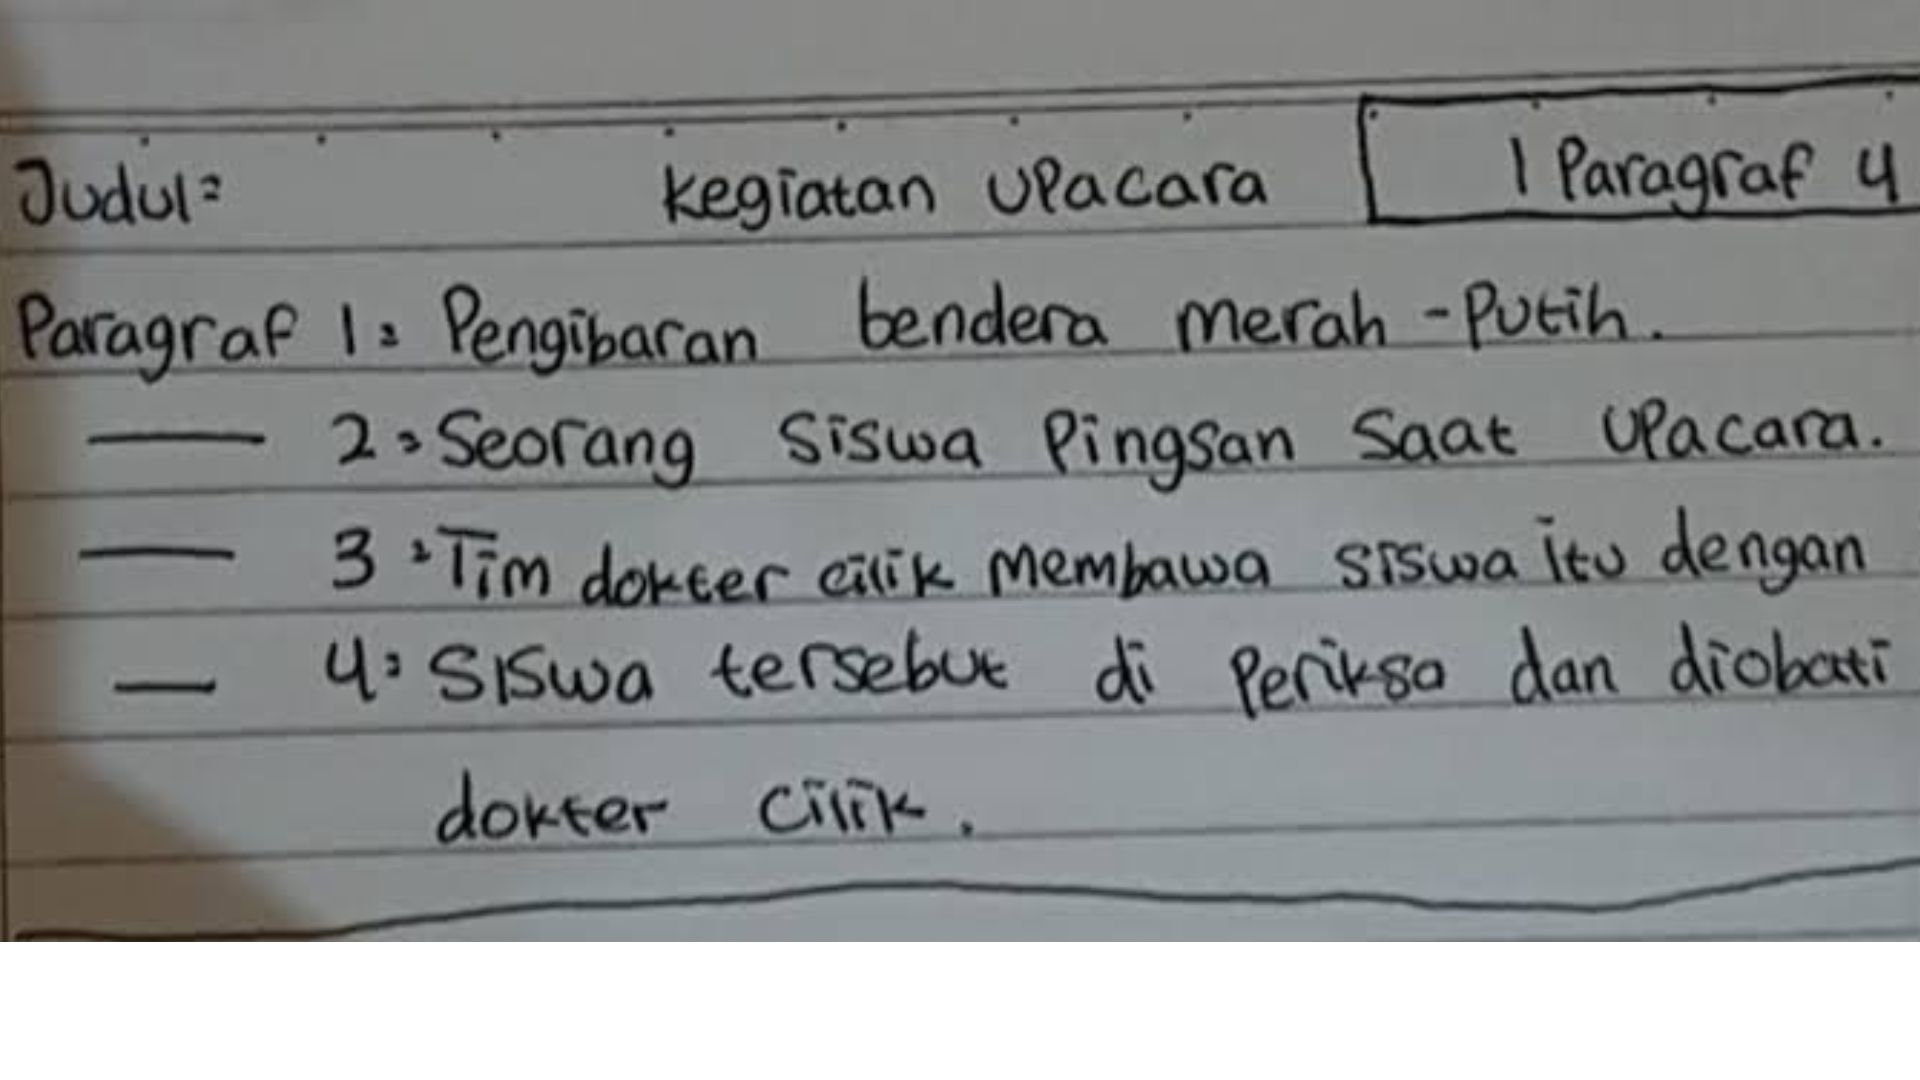 Judul: kegiatan upacara 1 Paragraf 4
Paragraf 1: Pengibaran bendera merah-Putih.
— 2: Seorang siswa Pingsan Saat upacara.
— 3: Tim dokter cilik membawa siswa itu dengan
— 4: Siswa tersebut di Periksa dan diobati
dokter cilik.